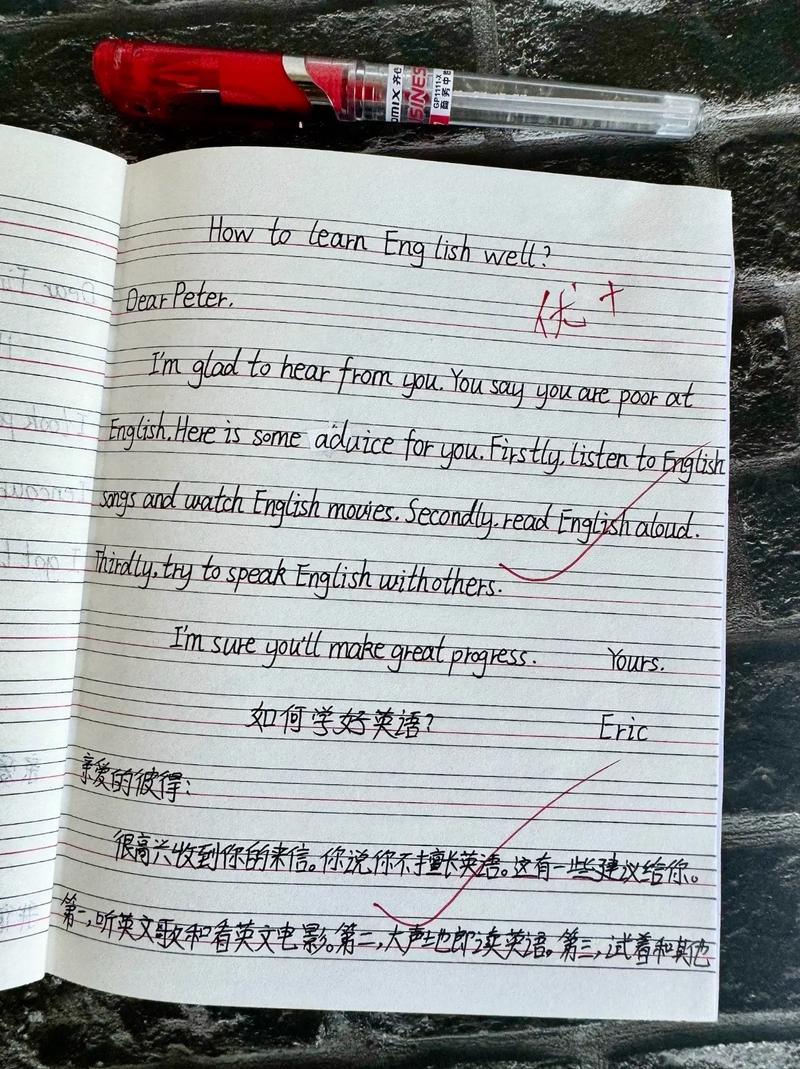 齐心
SINES
GP1111-X
商务中
How to learn English well?
Dear Peter.
优+
I'm glad to hear from you. You say you are poor at
English. Here is some advice for you. Firstly, listen to English
songs and watch English movies. Secondly, read English aloud.
Thirdly, try to speak English with others.
I'm sure you'll make great progress. Yours.
如何学好英语? Eric
亲爱的彼得:
很高兴收到你的来信。你说你不擅长英语。这有一些建议给你。
第一,听英文歌和看英文电影。第二,大声地朗读英语。第三,试着和其他